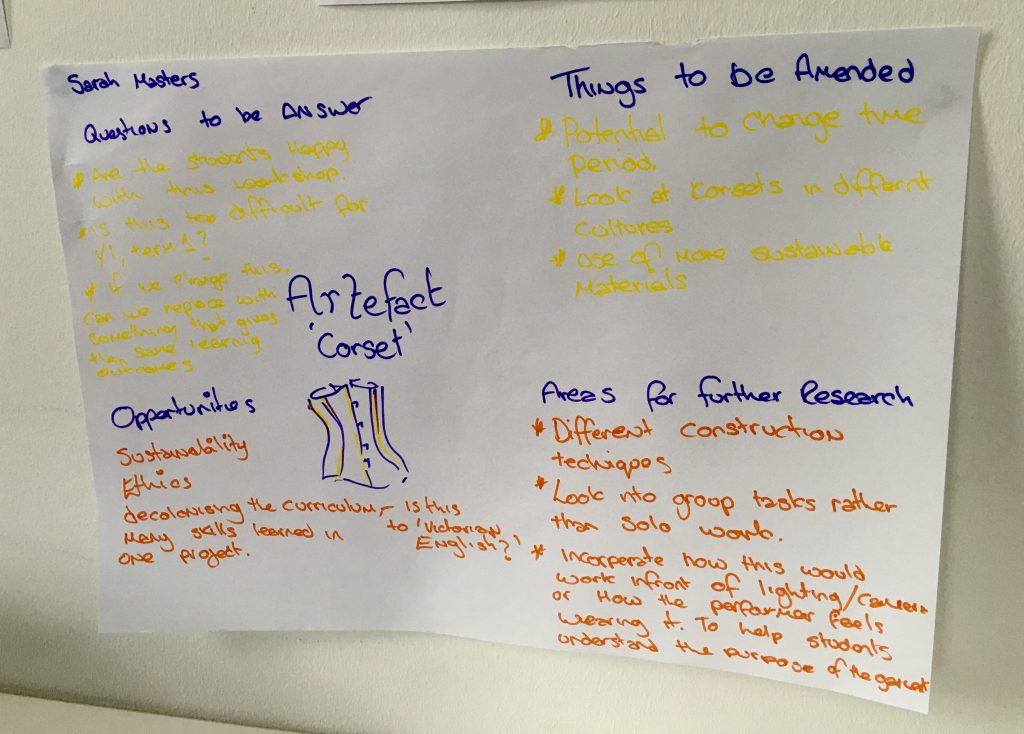 Sarah Masters
Questions to be Answer
* Are the students Happy
with this workshop.
* is this too difficult for
Y1, term 1?
* if we change this,
can we replace with
something that gives
then same learnig
outcomes
Artefact
'Corset'
Opportunities
Sustainability
Ethics
decolonising the curriculum, - is this
to 'Victorian
English?'
Many skills learned in
one project.
Things to be Amended
* Potential to change time
period.
* Look at corsets in differnt
cultures
* use of More sustainable
Materials
Areas for further Research
* Different construction
techniqes
* Look into group tasks rather
than solo work.
* Incorperate how this would
work infront of lighting/camera
or How the performer feels
wearing it. To help students
understand the purpose of the garment